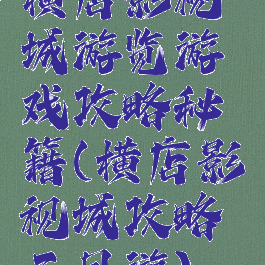 横店影视
城游览游
戏攻略秘
籍(横店影
视城攻略